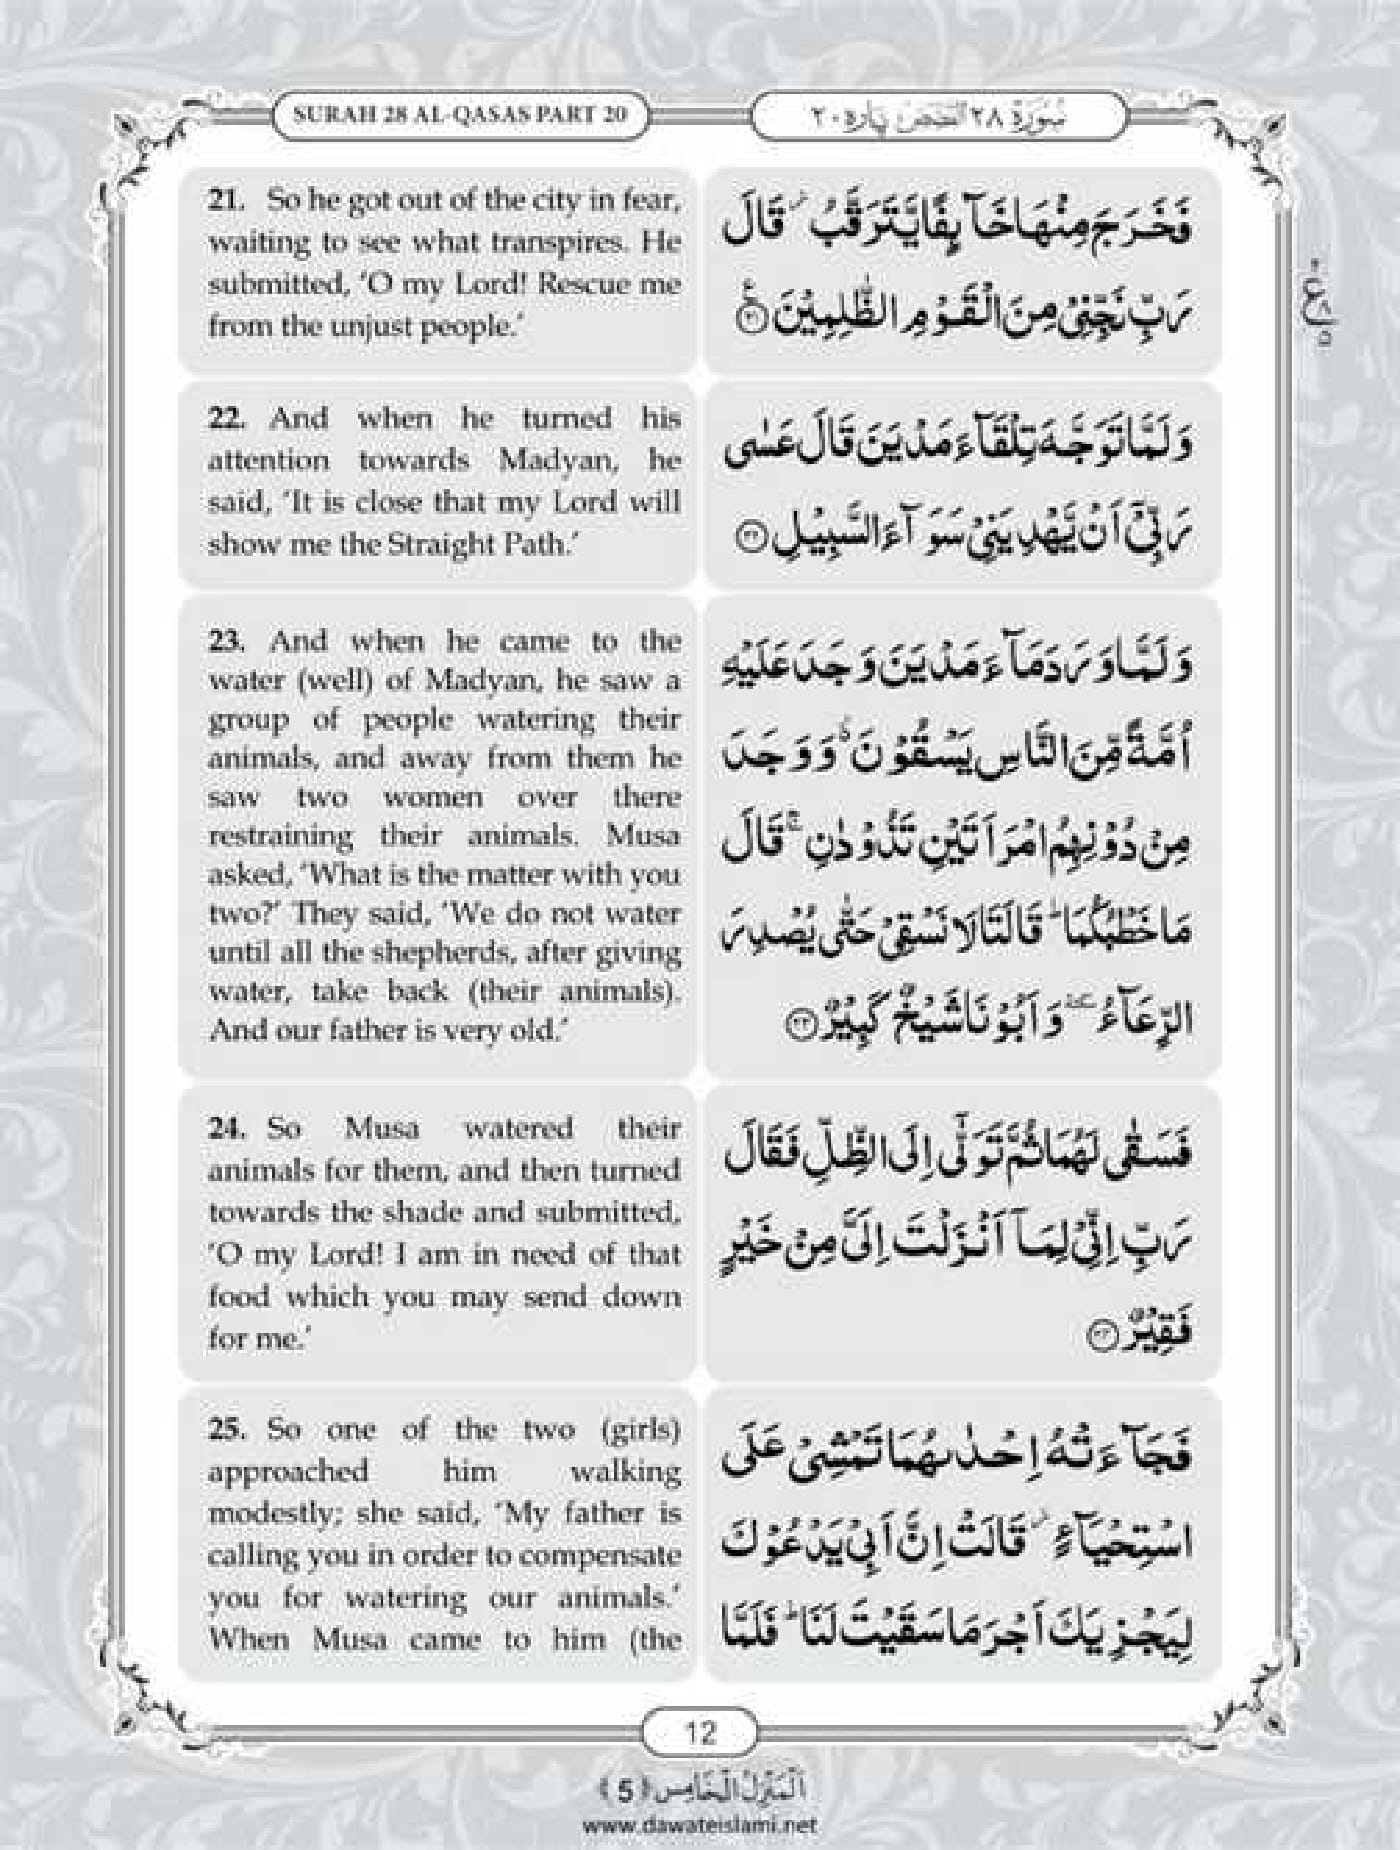 SURAH 28 AL-QASAS PART 20
سُوْرَةُ ٢٨ القصص پاره ٢٠
21. So he got out of the city in fear,
waiting to see what transpires. He
submitted, ‘O my Lord! Rescue me
from the unjust people.’
فَخَرَجَ مِنْهَا خَآئِفًا يَّتَرَقَّبُ ۫ قَالَ
رَبِّ نَجِّنِيْ مِنَ الْقَوْمِ الظّٰلِمِيْنَ ﴿٢١﴾
22. And when he turned his
attention towards Madyan, he
said, ‘It is close that my Lord will
show me the Straight Path.’
وَلَمَّا تَوَجَّهَ تِلْقَآءَ مَدْيَنَ قَالَ عَسٰى
رَبِّيْۤ اَنْ يَّهْدِيَنِيْ سَوَآءَ السَّبِيْلِ ﴿٢٢﴾
23. And when he came to the
water (well) of Madyan, he saw a
group of people watering their
animals, and away from them he
saw two women over there
restraining their animals. Musa
asked, ‘What is the matter with you
two?’ They said, ‘We do not water
until all the shepherds, after giving
water, take back (their animals).
And our father is very old.’
وَلَمَّا وَرَدَ مَآءَ مَدْيَنَ وَجَدَ عَلَيْهِ
اُمَّةً مِّنَ النَّاسِ يَسْقُوْنَ ۬ وَوَجَدَ
مِنْ دُوْنِهِمُ امْرَاَتَيْنِ تَذُوْدٰنِ ۚ قَالَ
مَا خَطْبُكُمَا ؕ قَالَتَا لَا نَسْقِيْ حَتّٰى يُصْدِرَ
الرِّعَآءُ ٚ وَاَبُوْنَا شَيْخٌ كَبِيْرٌ ﴿٢٣﴾
24. So Musa watered their
animals for them, and then turned
towards the shade and submitted,
‘O my Lord! I am in need of that
food which you may send down
for me.’
فَسَقٰى لَهُمَا ثُمَّ تَوَلّٰۤى اِلَى الظِّلِّ فَقَالَ
رَبِّ اِنِّيْ لِمَاۤ اَنْزَلْتَ اِلَيَّ مِنْ خَيْرٍ
فَقِيْرٌ ﴿٢٤﴾
25. So one of the two (girls)
approached him walking
modestly; she said, ‘My father is
calling you in order to compensate
you for watering our animals.’
When Musa came to him (the
فَجَآءَتْهُ اِحْدٰىهُمَا تَمْشِيْ عَلَى
اسْتِحْيَآءٍ ۫ قَالَتْ اِنَّ اَبِيْ يَدْعُوْكَ
لِيَجْزِيَكَ اَجْرَ مَا سَقَيْتَ لَنَا ؕ فَلَمَّا
12
اَلْمَنْزِلُ الْخَامِس ﴿5﴾
www.dawateislami.net